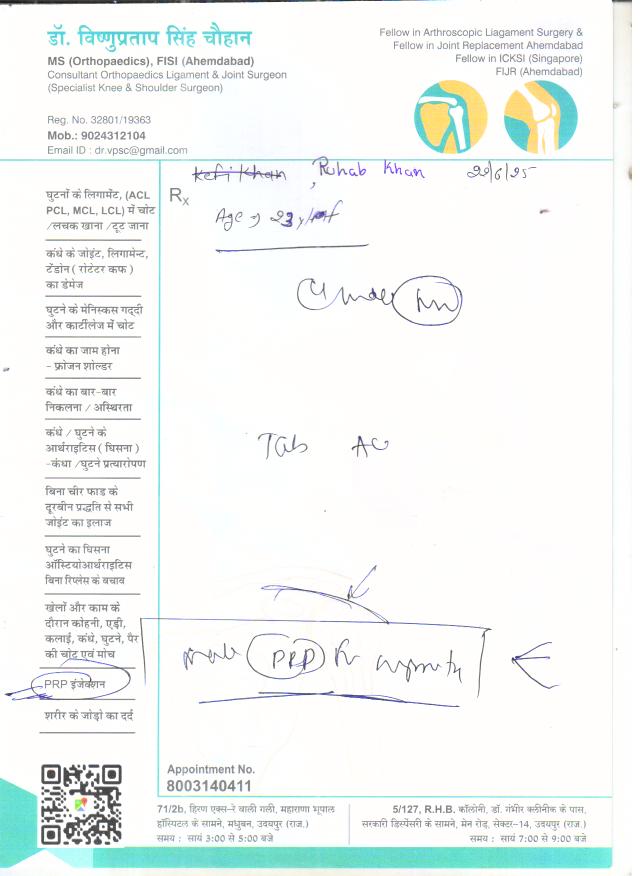 डॉ. विष्णुप्रताप सिंह चौहान
MS (Orthopaedics), FISI (Ahemdabad)
Consultant Orthopaedics Ligament & Joint Surgeon
(Specialist Knee & Shoulder Surgeon)
Reg. No. 32801/19363
Mob.: 9024312104
Email ID : dr.vpsc@gmail.com
Fellow in Arthroscopic Liagament Surgery &
Fellow in Joint Replacement Ahemdabad
Fellow in ICKSI (Singapore)
FIJR (Ahemdabad)
Khan Ruhab Khan 22/6/25
Rx
Age 23
घुटनों के लिगामेंट, (ACL
PCL, MCL, LCL) में चोट
/लचक खाना / टूट जाना
कंधे के जोइंट, लिगामेन्ट,
टेंडोन ( रोटेटर कफ )
का डेमेज
घुटने के मेनिस्कस गद्दी
और कार्टीलेज में चोट
कंधे का जाम होना
- फ्रोजन शोल्डर
कंधे का बार-बार
निकलना / अस्थिरता
कंधे / घुटने के
आर्थराइटिस ( घिसना )
-कंधा /घुटने प्रत्यारोपण
बिना चीर फाड के
दूरबीन प्रद्धति से सभी
जोइंट का इलाज
घुटने का घिसना
ऑस्टियोआर्थराइटिस
बिना रिप्लेस के बचाव
खेलों और काम के
दौरान कोहनी, एड़ी,
कलाई, कंधे, घुटने, पैर
की चोट एवं मोच
PRP इंजेक्शन
शरीर के जोड़ो का दर्द
Tab
PRP
Appointment No.
8003140411
71/2b, हिरण एक्स-रे वाली गली, महाराणा भूपाल
हॉस्पिटल के सामने, मधुबन, उदयपुर (राज.)
समय : सायं 3:00 से 5:00 बजे
5/127, R.H.B. कॉलोनी, डॉ. गंभीर क्लीनीक के पास,
सरकारी डिस्पेंसरी के सामने, मेन रोड़, सेक्टर-14, उदयपुर (राज.)
समय : सायं 7:00 से 9:00 बजे